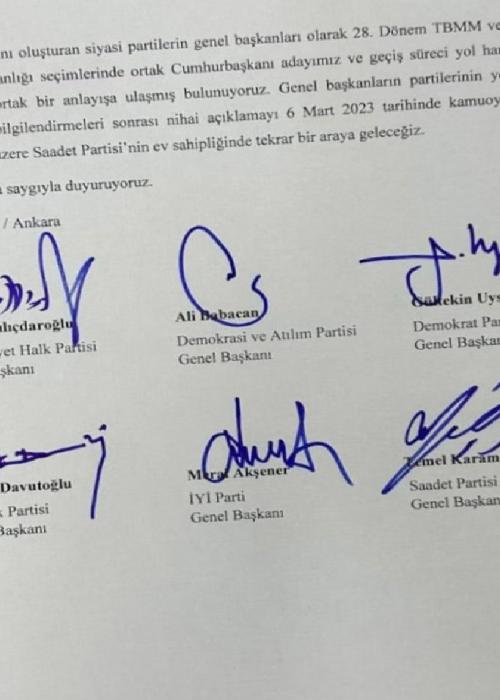 nı oluşturan siyasi partilerin genel başkanları olarak 28. Dönem TBMM ve
anlığı seçimlerinde ortak Cumhurbaşkanı adayımız ve geçiş süreci yol har
ortak bir anlayışa ulaşmış bulunuyoruz. Genel başkanların partilerinin ye
bilgilendirmeleri sonrası nihai açıklamayı 6 Mart 2023 tarihinde kamuoy
üzere Saadet Partisi'nin ev sahipliğinde tekrar bir araya geleceğiz.
saygıyla duyuruyoruz.
/ Ankara
lıçdaroğlu
Ali Babacan
Gültekin Uys
yet Halk Partisi
Demokrasi ve Atılım Partisi
Demokrat Par
şkanı
Genel Başkanı
Genel Başkan
Davutoğlu
Meral Akşener
Temel Karam
k Partisi
İYİ Parti
Saadet Partisi
Başkanı
Genel Başkanı
Genel Başkanı